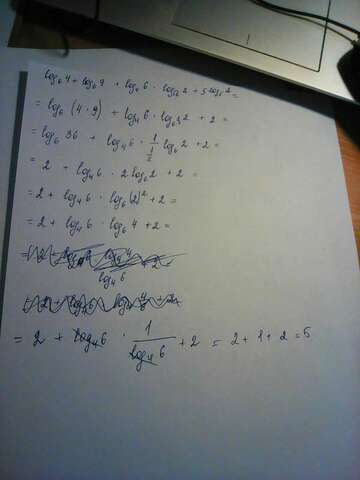 log₆4 + log₆9 + log₄6 · log√₆2 + 5^log₅2 =
= log₆ (4 · 9) + log₄6 · log₆½2 + 2 =
= log₆ 36 + log₄6 · 1/½ log₆2 + 2 =
= 2 + log₄6 · 2 log₆2 + 2 =
= 2 + log₄6 · log₆(2)² + 2 =
= 2 + log₄6 · log₆4 + 2 =
= 2 + log₄6 · 1/log₄6 + 2 = 2 + 1 + 2 = 5